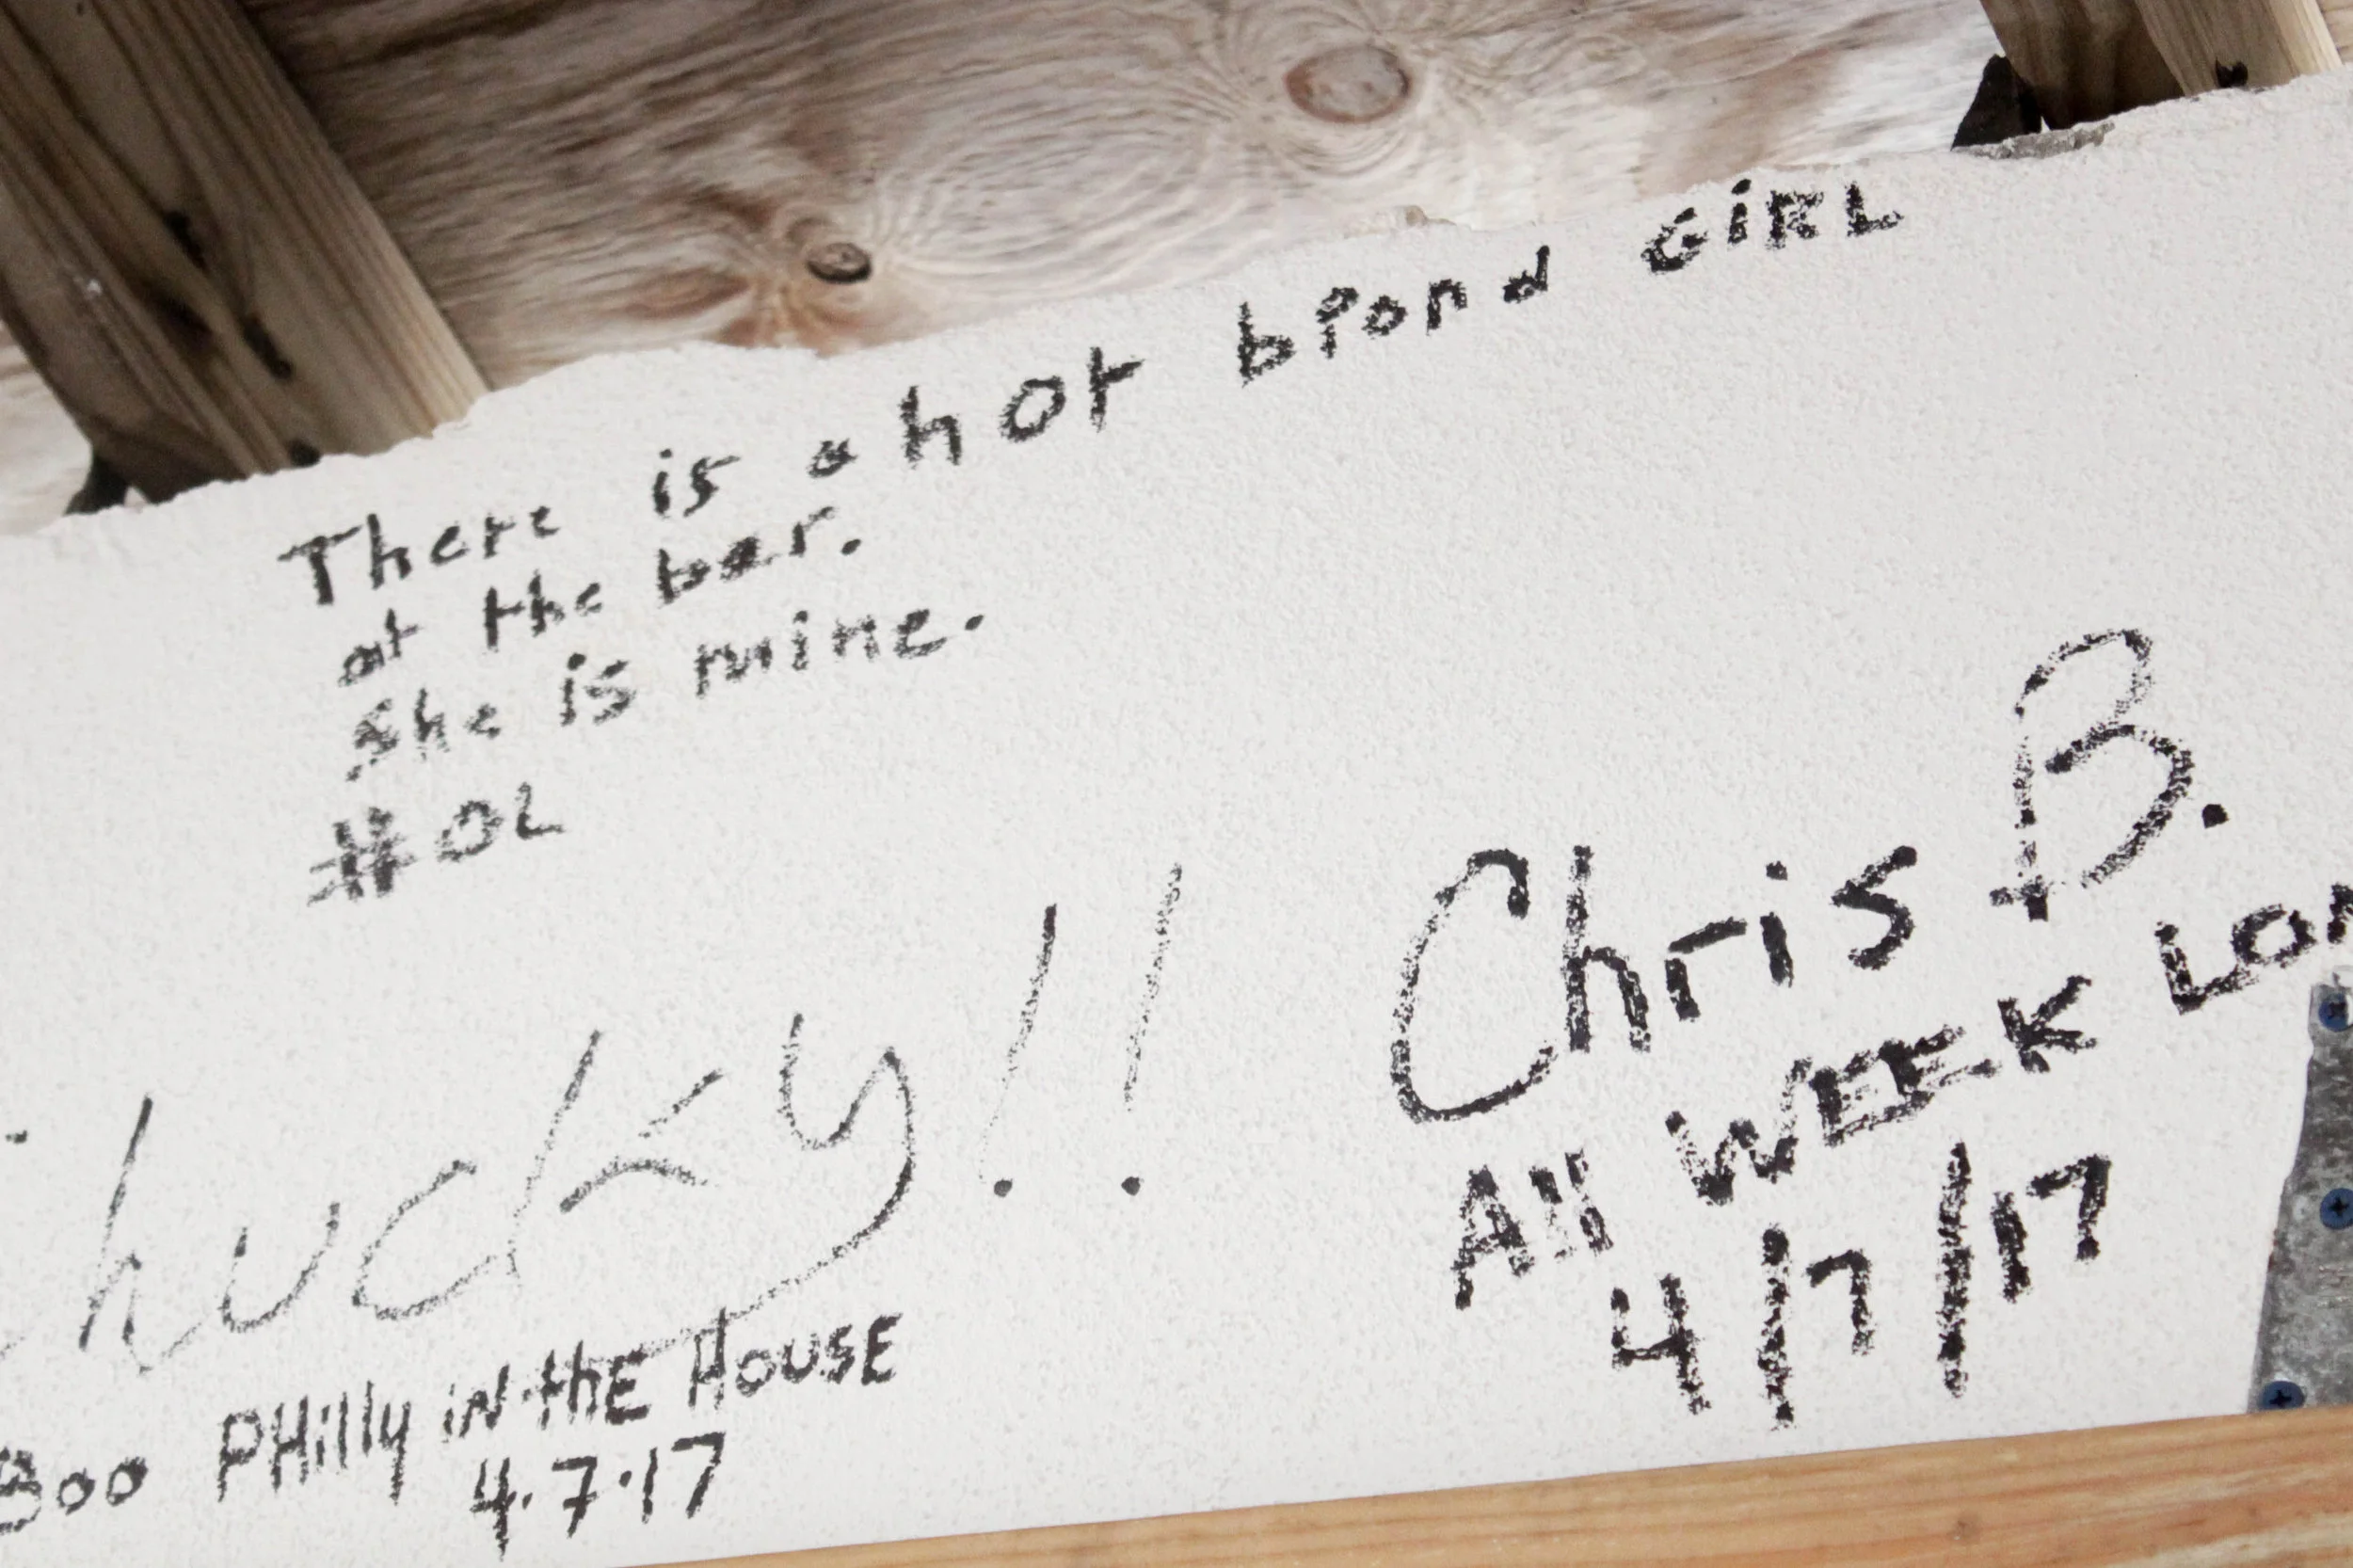 There is a hot blond GiRL
at the bar.
She is mine.
#OL
Chucky!!
Boo PHilly iN thE HOUSE
4.7.17
Chris B.
All WEEK LON
4/7/17